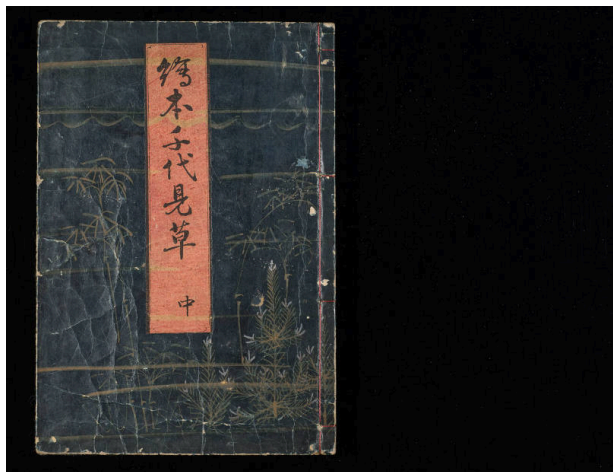 繪本千代見草
中